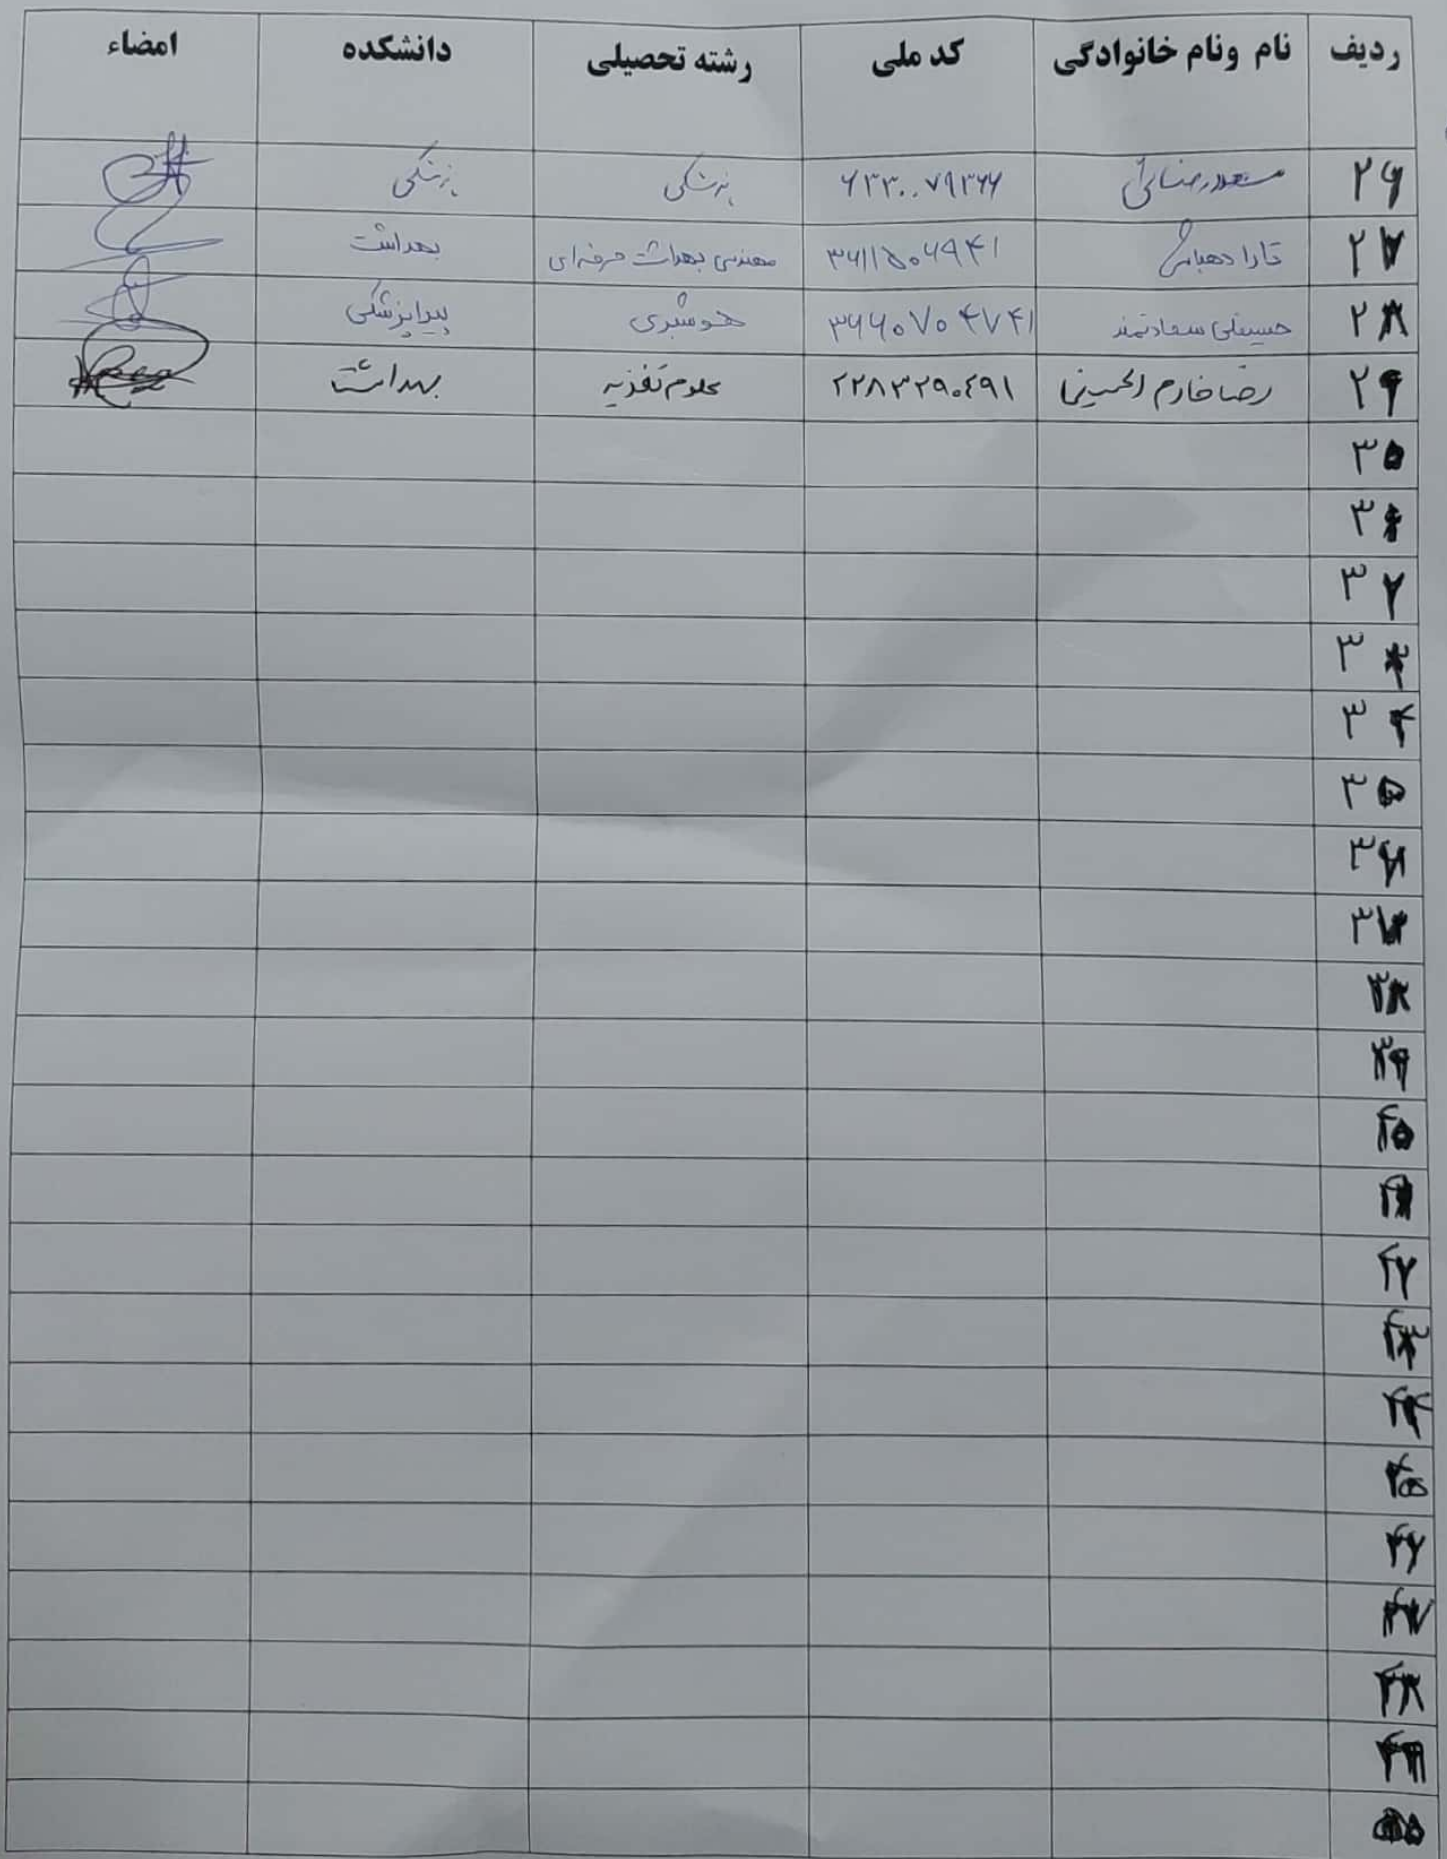 ردیف نام ونام خانوادگی کد ملی رشته تحصیلی دانشکده امضاء
۲۶ مسعود رضائی ۶۳۳۰۰۷۹۳۶۶ پزشکی پزشکی
۲۷ تارا ۳۶۱۱۵۰۶۹۴۱ مهندسی بهداشت حرفه‌ای بهداشت
۲۸ حسینعلی سعادتمند ۳۶۶۰۷۰۴۷۴۱ هوشبری پیراپزشکی
۲۹ رضا خادم الحسینی ۲۲۸۳۲۹۰۴۹۱ علوم تغذیه بهداشت
۳۰
۳۱
۳۲
۳۳
۳۴
۳۵
۳۶
۳۷
۳۸
۳۹
۴۰
۴۱
۴۲
۴۳
۴۴
۴۵
۴۶
۴۷
۴۸
۴۹
۵۰